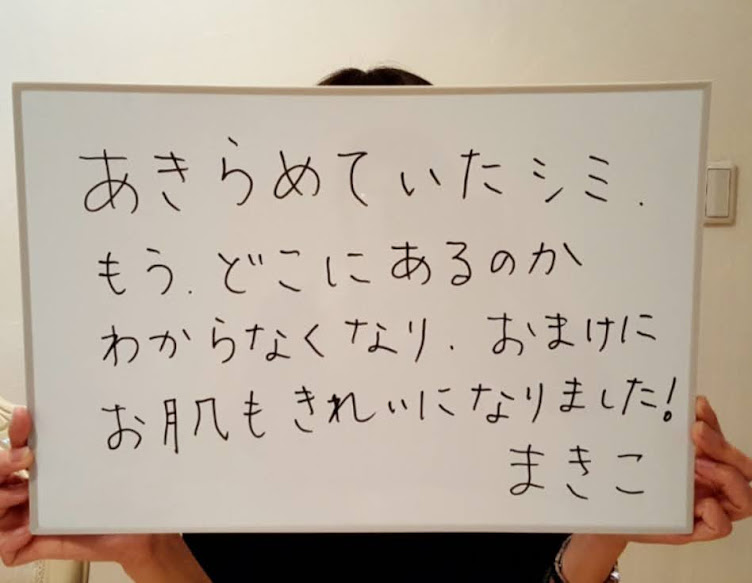 あきらめていたシミ.
もう.どこにあるのか
わからなくなり.おまけに
お肌もきれいになりました!
まきこ